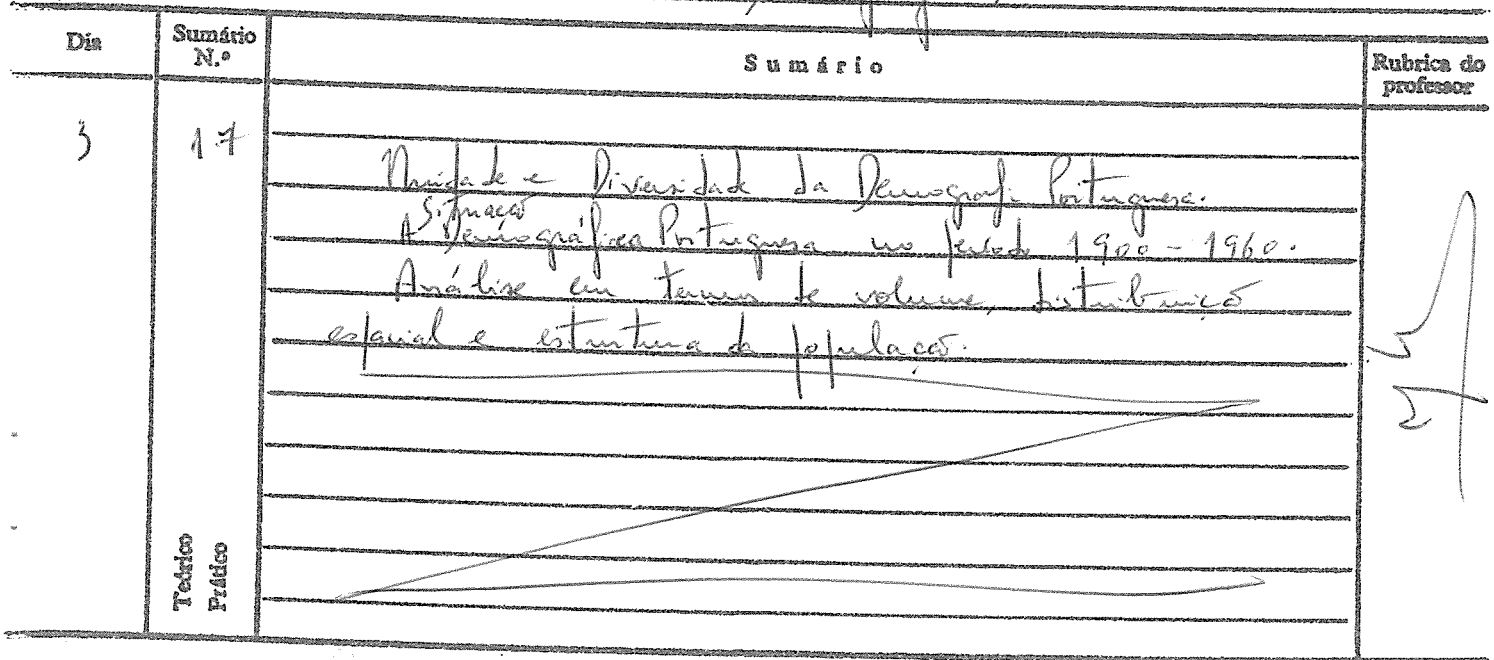 Dia
Sumário N.º
Sumário
Rubrica do professor
3
17
Unidade e Diversidade da Demografi Portuguesa.
A Situação Demográfica Portuguesa no período 1900-1960.
Análise em termos de volume, distribuição
espacial e estrutura da população.
Teórico
Prático